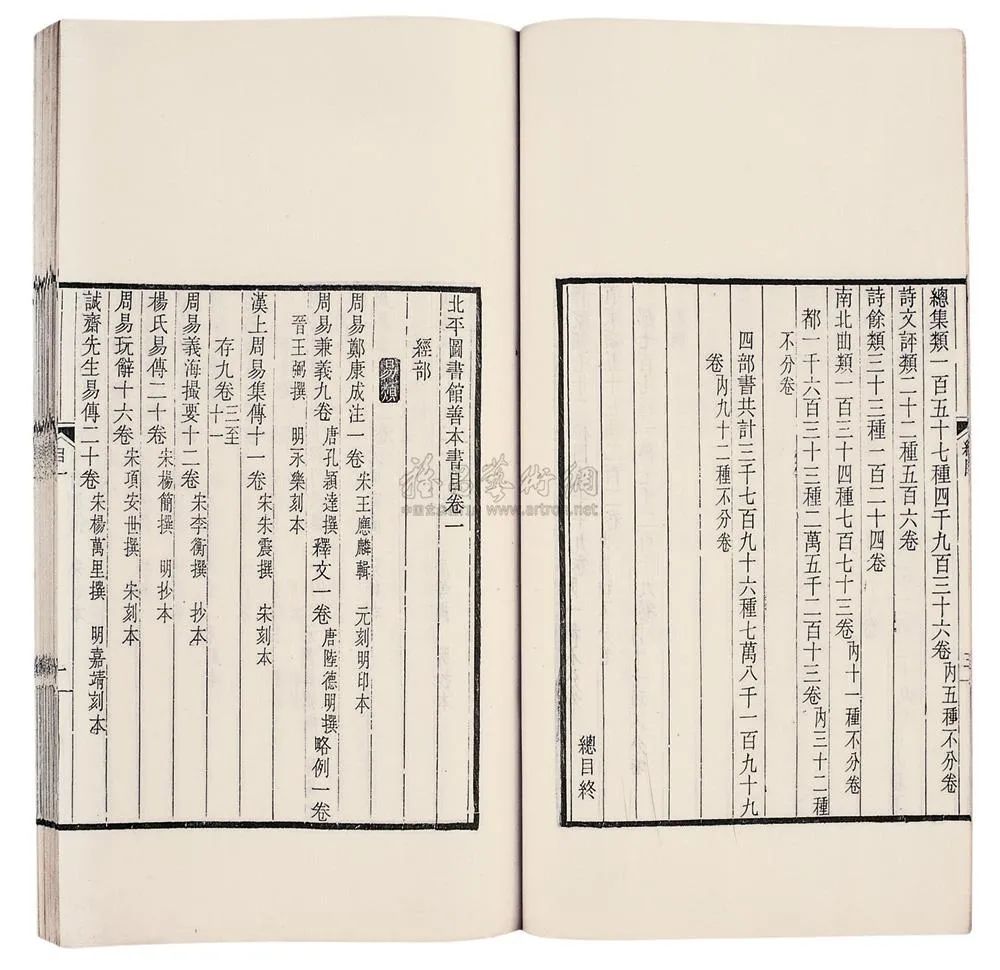 總集類一百五十七種四千九百三十六卷內五種不分卷
詩文評類二十二種五百六卷
詩餘類三十三種一百二十四卷
南北曲類一百三十四種七百七十三卷內十一種不分卷
都一千六百三十三種二萬五千二百十三卷內三十二種
不分卷
四部書共計三千七百九十六種七萬八千一百九十九
卷內九十二種不分卷
總目終
北平圖書館善本書目卷一
經部
易類
周易鄭康成注一卷 宋王應麟輯 元刻明印本
周易兼義九卷 唐孔頴達撰 釋文一卷 唐陸德明撰 略例一卷
晉王弼撰 明永樂刻本
漢上周易集傳十一卷 宋朱震撰 宋刻本
存九卷 三至十一
周易義海撮要十二卷 宋李衡撰 抄本
楊氏易傳二十卷 宋楊簡撰 明抄本
周易玩辭十六卷 宋項安世撰 宋刻本
誠齋先生易傳二十卷 宋楊萬里撰 明嘉靖刻本
目一
一
www.artron.net